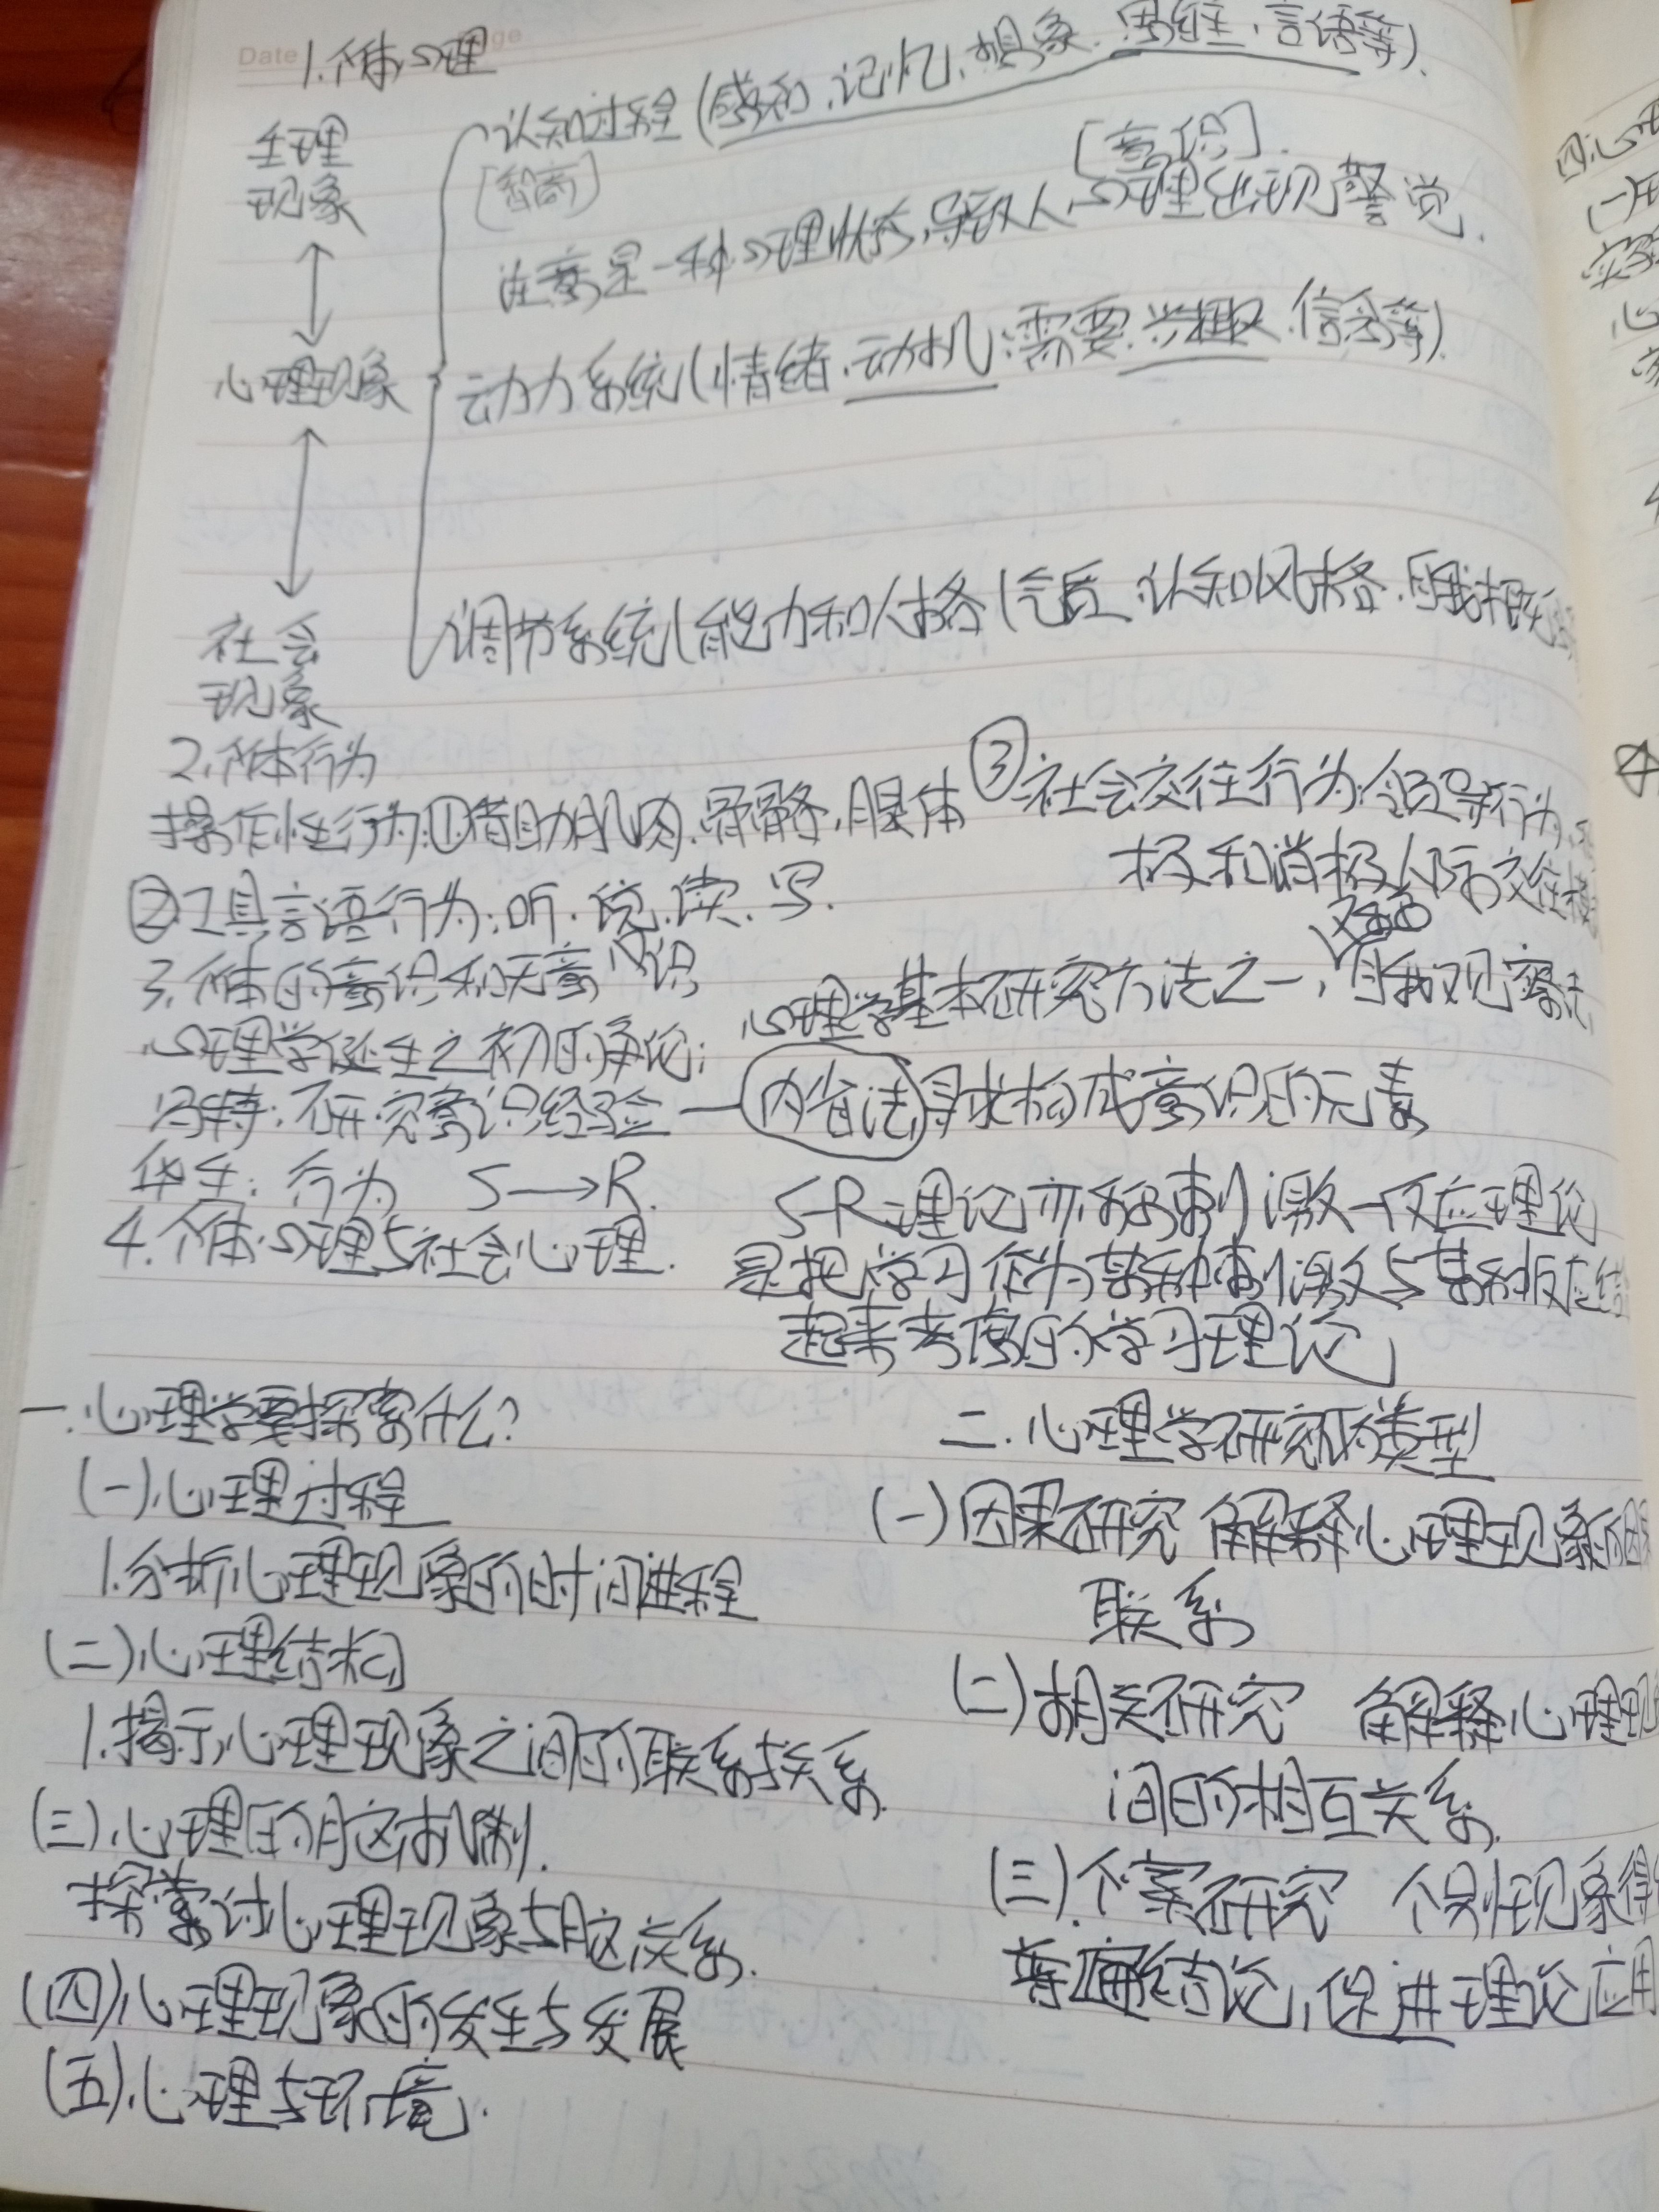 Date
1.个体心理
生理
现象
认知过程(感知、记忆、想象、思维、言语等).
[智商]
[意识].
注意是一种心理状态,导致人心理出现警觉.
心理现象
动力系统(情绪、动机:需要、兴趣、信念等).
社会
现象
调节系统(能力和人格(气质、认知风格、自我概
2.个体行为
操作性行为:①借助肌肉、骨骼、腺体
②工具言语行为:听、说、读、写.
③社会交往行为:领导行为、
极和消极人际交往
3.个体的意识和无意识
心理学诞生之初的争论:
冯特:研究意识经验—内省法,寻找构成意识的元素
又名
心理学基本研究方法之一,自我观察法
华生:行为 S→R.
S-R理论亦称刺激—反应理论
是把学习作为某种刺激与某种反应结
起来考虑的学习理论
4.个体心理与社会心理.
一.心理学要探索什么?
(一)心理过程
1.分析心理现象的时间进程
(二)心理结构
1.揭示心理现象之间的联系与关系.
(三)心理的脑机制.
探讨心理现象与脑关系.
(四)心理现象的发生与发展
(五)心理与环境.
二.心理学研究的类型
(一)因果研究 解释心理现象的因
联系
(二)相关研究 解释心理现
间的相互关系.
(三).个案研究 个别现象得
普遍结论,促进理论应用